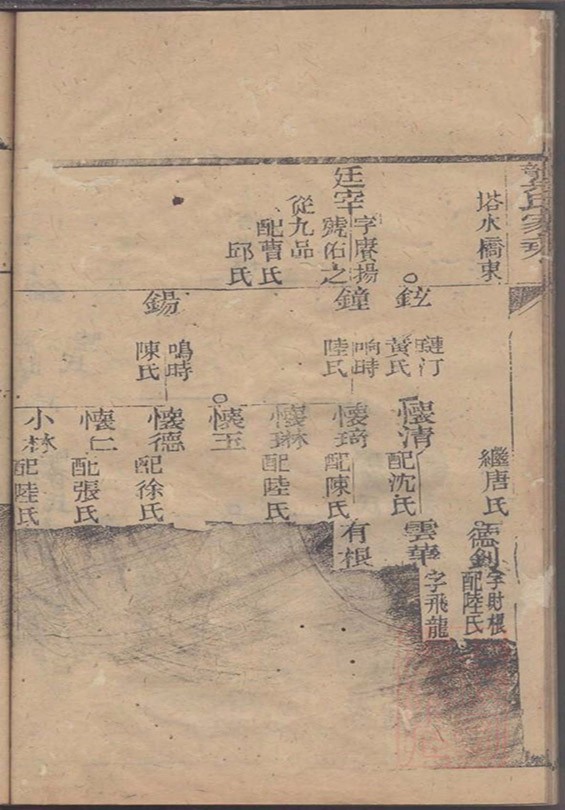 塔水橋東
廷宰
字賡揚
號佑之
從九品
配曹氏
邱氏
鉉
璉汀
黃氏
鐘
响時
陸氏
鍚
鳴時
陳氏
繼唐氏
懷清
配沈氏
懷琦
配陳氏
懷琳
配陸氏
懷玉
懷德
配徐氏
懷仁
配張氏
小林
配陸氏
德釗
字財根
配陸氏
雲華
字飛龍
有根